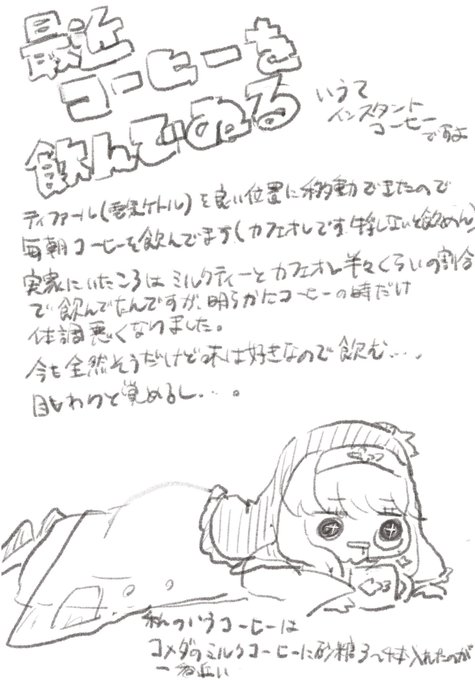 最近
コーヒーを
飲んでぬる
いうて
インスタント
コーヒー
ですよ
ティファール(電気ケトル)を良い位置に移動できたので
毎朝コーヒーを飲んでます(カフェオレです。
実家にいたころはミルクティーとカフェオレ半々くらいの割合
で飲んでたんですが、明らかにコーヒーの時だけ
体調悪くなりました。
今も全然そうだけど味は好きなので飲む…。
目もわりと覚めるし…。
私のいうコーヒーは
コメダのミルクコーヒーに砂糖3〜4本入れたのが
一番近い